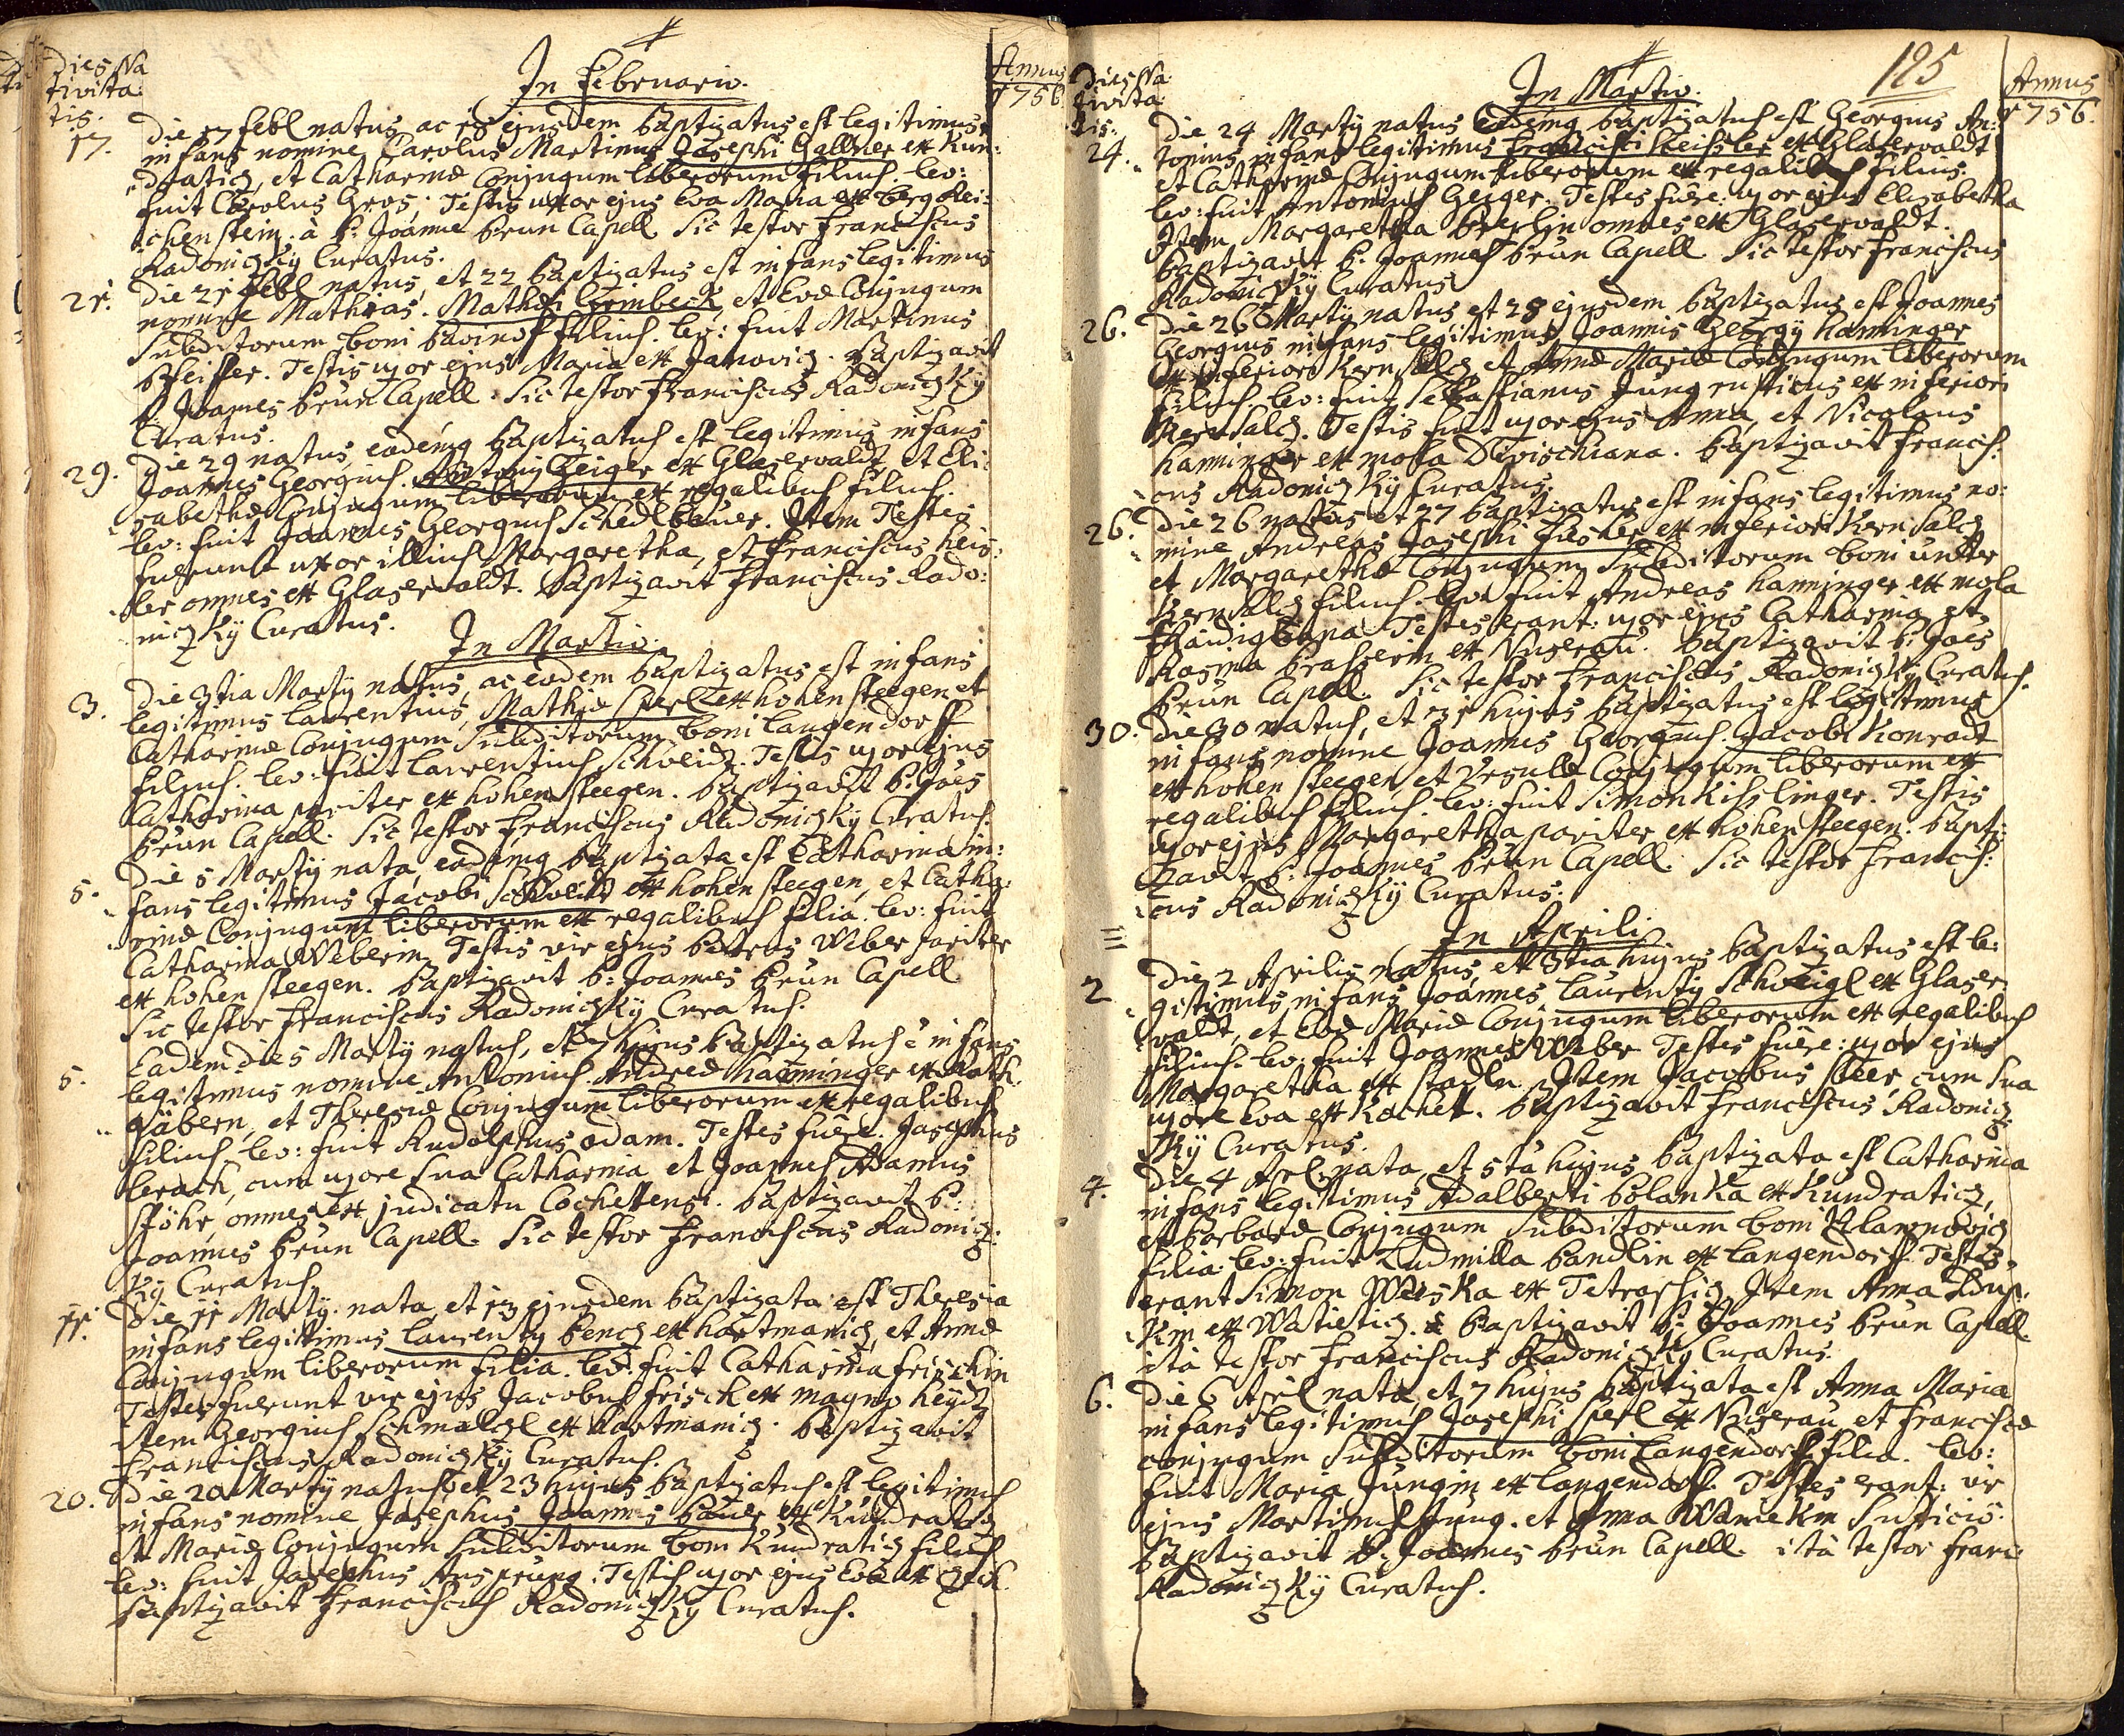 Dies Na
tivita:
tis.
In Februario.
Annus
1756
17.
Die 17 febl natus ac 18 ejusdem baptizatus est legitimus
infans nomine Carolus Martinus Josephi Gallner ex Kun:
dratiz, et Catharinæ Conjugum liberorum filius. lev:
fuit Carolus Gros. Testis uxor ejus Eva Maria ex berg Rei:
chenstein. à P: Joanne brun Capell. Sic testor Franciscus
Radonizky Curatus.
21.
Die 21 Febl natus, et 22 baptizatus est infans legitimus
nomine Mathias. Mathæi Grimbeck, et Evæ Conjugum
Subditorum boni filius. lev: fuit Martinus
Pfeiffer. Testis uxor ejus Maria ex Janoviz. Baptizavit
P Joannes brun Capell. Sic testor Franciscus Radonizky
Curatus.
29.
Die 29 natus, eademq baptizatus est legitimus infans
Joannes Georgius. Antonij Geiger ex Glaserwaldt, et Eli:
sabethæ Conjugum liberorum ex regalibus filius.
lev: fuit Joannes Georgius Schedlbauer. Item Testes
fuerunt uxor illius Margaretha, et Franciscus heis:
ler omnes ex Glaserwaldt. Baptizavit Franciscus Rado:
nizky Curatus.
In Martio.
3.
Die 3tia Martij natus, ac eodem baptizatus est infans
legitimus laurentius, Mathiæ Sperl ex hohen steegen et
Catharinæ Conjugum Subditorum boni langendorff
filius. lev: fuit laurentius Schweidz. Testis uxor ejus
Catharina pariter ex hohen steegen. baptizavit P: Joes
brun Capell. Sic testor Franciscus Radonizky Curatus.
5.
Die 5 Martij nata, eademq baptizata est Catharina in:
fans legitimus Jacobi Schweidz ex hohen steegen, et Catha:
rinæ Conjugum liberorum ex regalibus filia. lev: fuit
Catharina Weberin. Testis vir ejus Petrus Weber pariter
ex hohen steegen. Baptizavit P: Joannes brun Capell
Sic testor Franciscus Radonizky Curatus.
5.
Eadem die 5 Martij natus, et 7 hujus baptizatus ē infans
legitimus nomine Antonius. Andreæ haminger ex Rath
gäbern, et Theresiæ Conjugum liberorum ex regalibus
filius. lev: fuit Rudolphus adam. Testes fuêre: Josephus
lerach, cum uxore sua Catharina et Joannes Adamus
stöhr, omnes ex judicatu Cochettensi. baptizavit P:
Joannes brun Capell. Sic testor Franciscus Radoniz:
ky Curatus
11.
Die 11 Martij nata, et 13 ejusdem baptizata est Theresia
infans legitimus laurentij benez ex hartmaniz, et Annæ
Conjugum liberorum filia. lev: fuit Catharina frischin
Testes fuerunt vir ejus Jacobus frisch ex magno heydz
item Georgius Schmalzl ex hartmaniz. Baptizavit
Franciscus Radonizky Curatus.
20.
Die 20 Martij natus et 23 hujus baptizatus est legitimus
infans nomine Josephus. Joannis bauer ex Kundratiz
et Mariæ Conjugum Subditorum boni Kundratiz filius
lev: fuit Josephus Ansprung. Testis uxor ejus Eva ex
baptizavit Franciscus Radonizky Curatus.
Dies Na
tivita
tis:
In Martio.
125
Annus
1756.
24.
Die 24 Martij natus eademq baptizatus est Georgius An:
tonius infans legitimus Francisci heissler ex Glaserwaldt
et Catharinæ Conjugum liberorum ex regalibus filius.
lev: fuit Antonius Geiger. Testes fuêre: uxor ejus Elisabetha
Item Margaretha omnes ex Glaserwaldt.
baptizavit P. Joannes brun Capell. Sic testor Franciscus
Radonizky Curatus
26.
Die 26 Martij natus et 28 ejusdem baptizatus est Joannes
Georgius infans legitimus Joannis Georgij haminger
ex inferiori Kern salz, et Annæ Mariæ Conjugum liberorum
filius. lev: fuit Sebastianus Jung rusticus ex inferiori
Kernsalz. Testis fuit uxor ejus Anna, et Nicolaus
haminger ex mola Divischiana. baptizavit Francis:
cus Radonizky Curatus.
26.
Die 26 natus et 27 baptizatus est infans legitimus no:
mine Andreas Josephi fischer ex inferiori Kern salz
et Margarethæ Conjugum Subditorum boni unter
Kernsalz filius. lev: fuit Andreas haminger ex mola
Testes erant: uxor ejus Catharina, et
Rosina brasserin ex Nuserau. baptizavit P. Joes
brun Capell. Sic testor Franciscus Radonizky Curatus.
30.
Die 30 natus, et 31 hujus baptizatus est legitimus
infans nomine Joannes Georgius. Jacobi Konradt
ex hohen steegen, et Ursulæ Conjugum liberorum ex
regalibus filius. lev: fuit Simon Kisslinger. Testis
uxor ejus Margaretha pariter ex hohen steegen. bapti:
zavit P. Joannes brun Capell. Sic testor Francis:
cus Radonizky Curatus.
In Aprili
2
Die 2 Aprilis natus, et 3tia hujus baptizatus est le:
gitimus infans Joannes, laurentij Schweigl ex Glaser
waldt, et Evæ Mariæ Conjugum liberorum ex regalibus
filius. lev: fuit Joannes Weber Testes fuêre: uxor ejus
Margaretha ex stadln, Item Jacobus steer, cum sua
uxore Eva ex Kochett. baptizavit Franciscus Radoniz
ky Curatus.
4.
Die 4 Aprl. nata, et 5ta hujus baptizata est Catharina
infans legitimus Adalberti bolanka ex Kundratiz,
et barbaræ Conjugum Subditorum boni
filia: lev: fuit Ludmilla bandlin ex langendorff. Testes
erant Simon Weiska ex Tetrassiz, Item Anna
kin ex Watietiz. baptizavit P. Joannes brun Capell
ità testor Franciscus Radonizky Curatus.
6.
Die 6 Aprl nata, et 7 hujus baptizata est Anna Maria
infans legitimus Josephi Sperl ex Nuserau, et Franciscæ
conjugum Subditorum boni langendorff filia. lev:
fuit Maria Jungin ex langendorff. Testes erant: vir
ejus Martinus Jung. et Anna
baptizavit P: Joannes brun Capell. ità testor Franc
Radonizky Curatus.